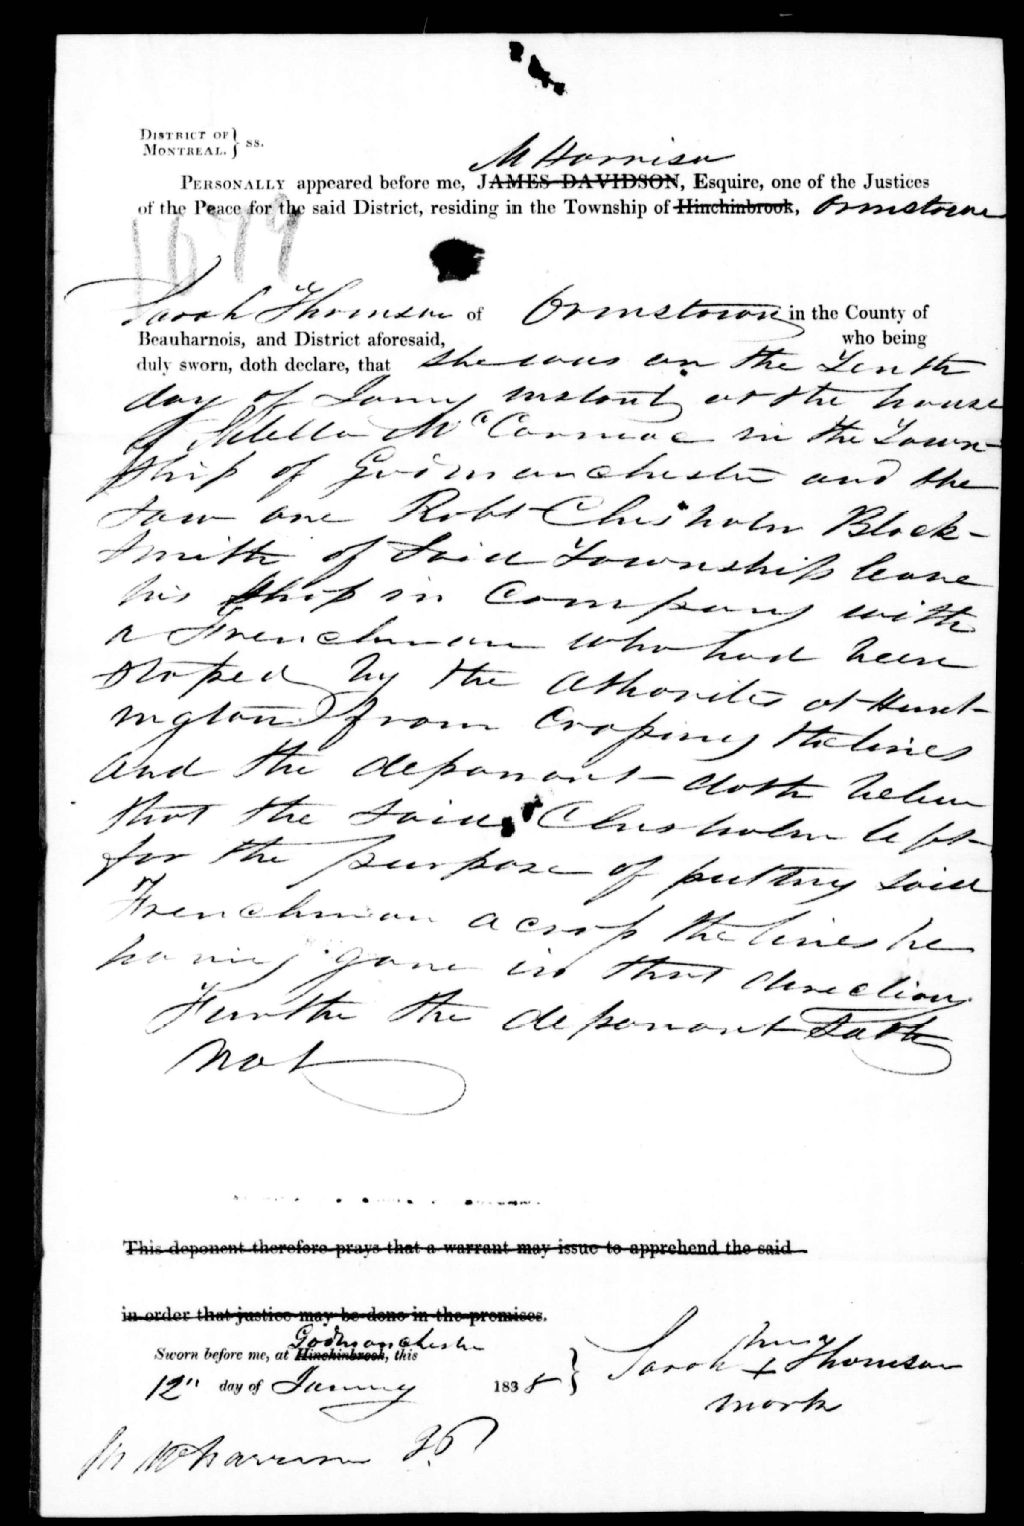 DISTRICT OF
MONTREAL. } ss.
M Harrison
PERSONALLY appeared before me, JAMES DAVIDSON, Esquire, one of the Justices
of the Peace for the said District, residing in the Township of Hinchinbrook, Ormstown
1679
Sarah Thomson of Ormstown in the County of
Beauharnois, and District aforesaid, who being
duly sworn, doth declare, that she was on the Tenth
day of Jany instant at the house
of McCormac in the Town-
ship of Godmanchester and the
saw one Robt Chisholm Black-
smith of Said Township leave
his Shop in Company with
a Frenchman who had been
stoped by the Athorites at Hunt-
ington from Crossing the lines
and the deponant doth beleve
that the said Chisholm left
for the purpose of putting said
Frenchman across the lines he
having gone in that direction
Further the deponant Saith
not
This deponent therefore prays that a warrant may issue to apprehend the said
in order that justice may be done in the premises.
Godmanchester
Sworn before me, at Hinchinbrook, this
12" day of January 1838 }
Sarah her + Thomson
mark
Harrison JP